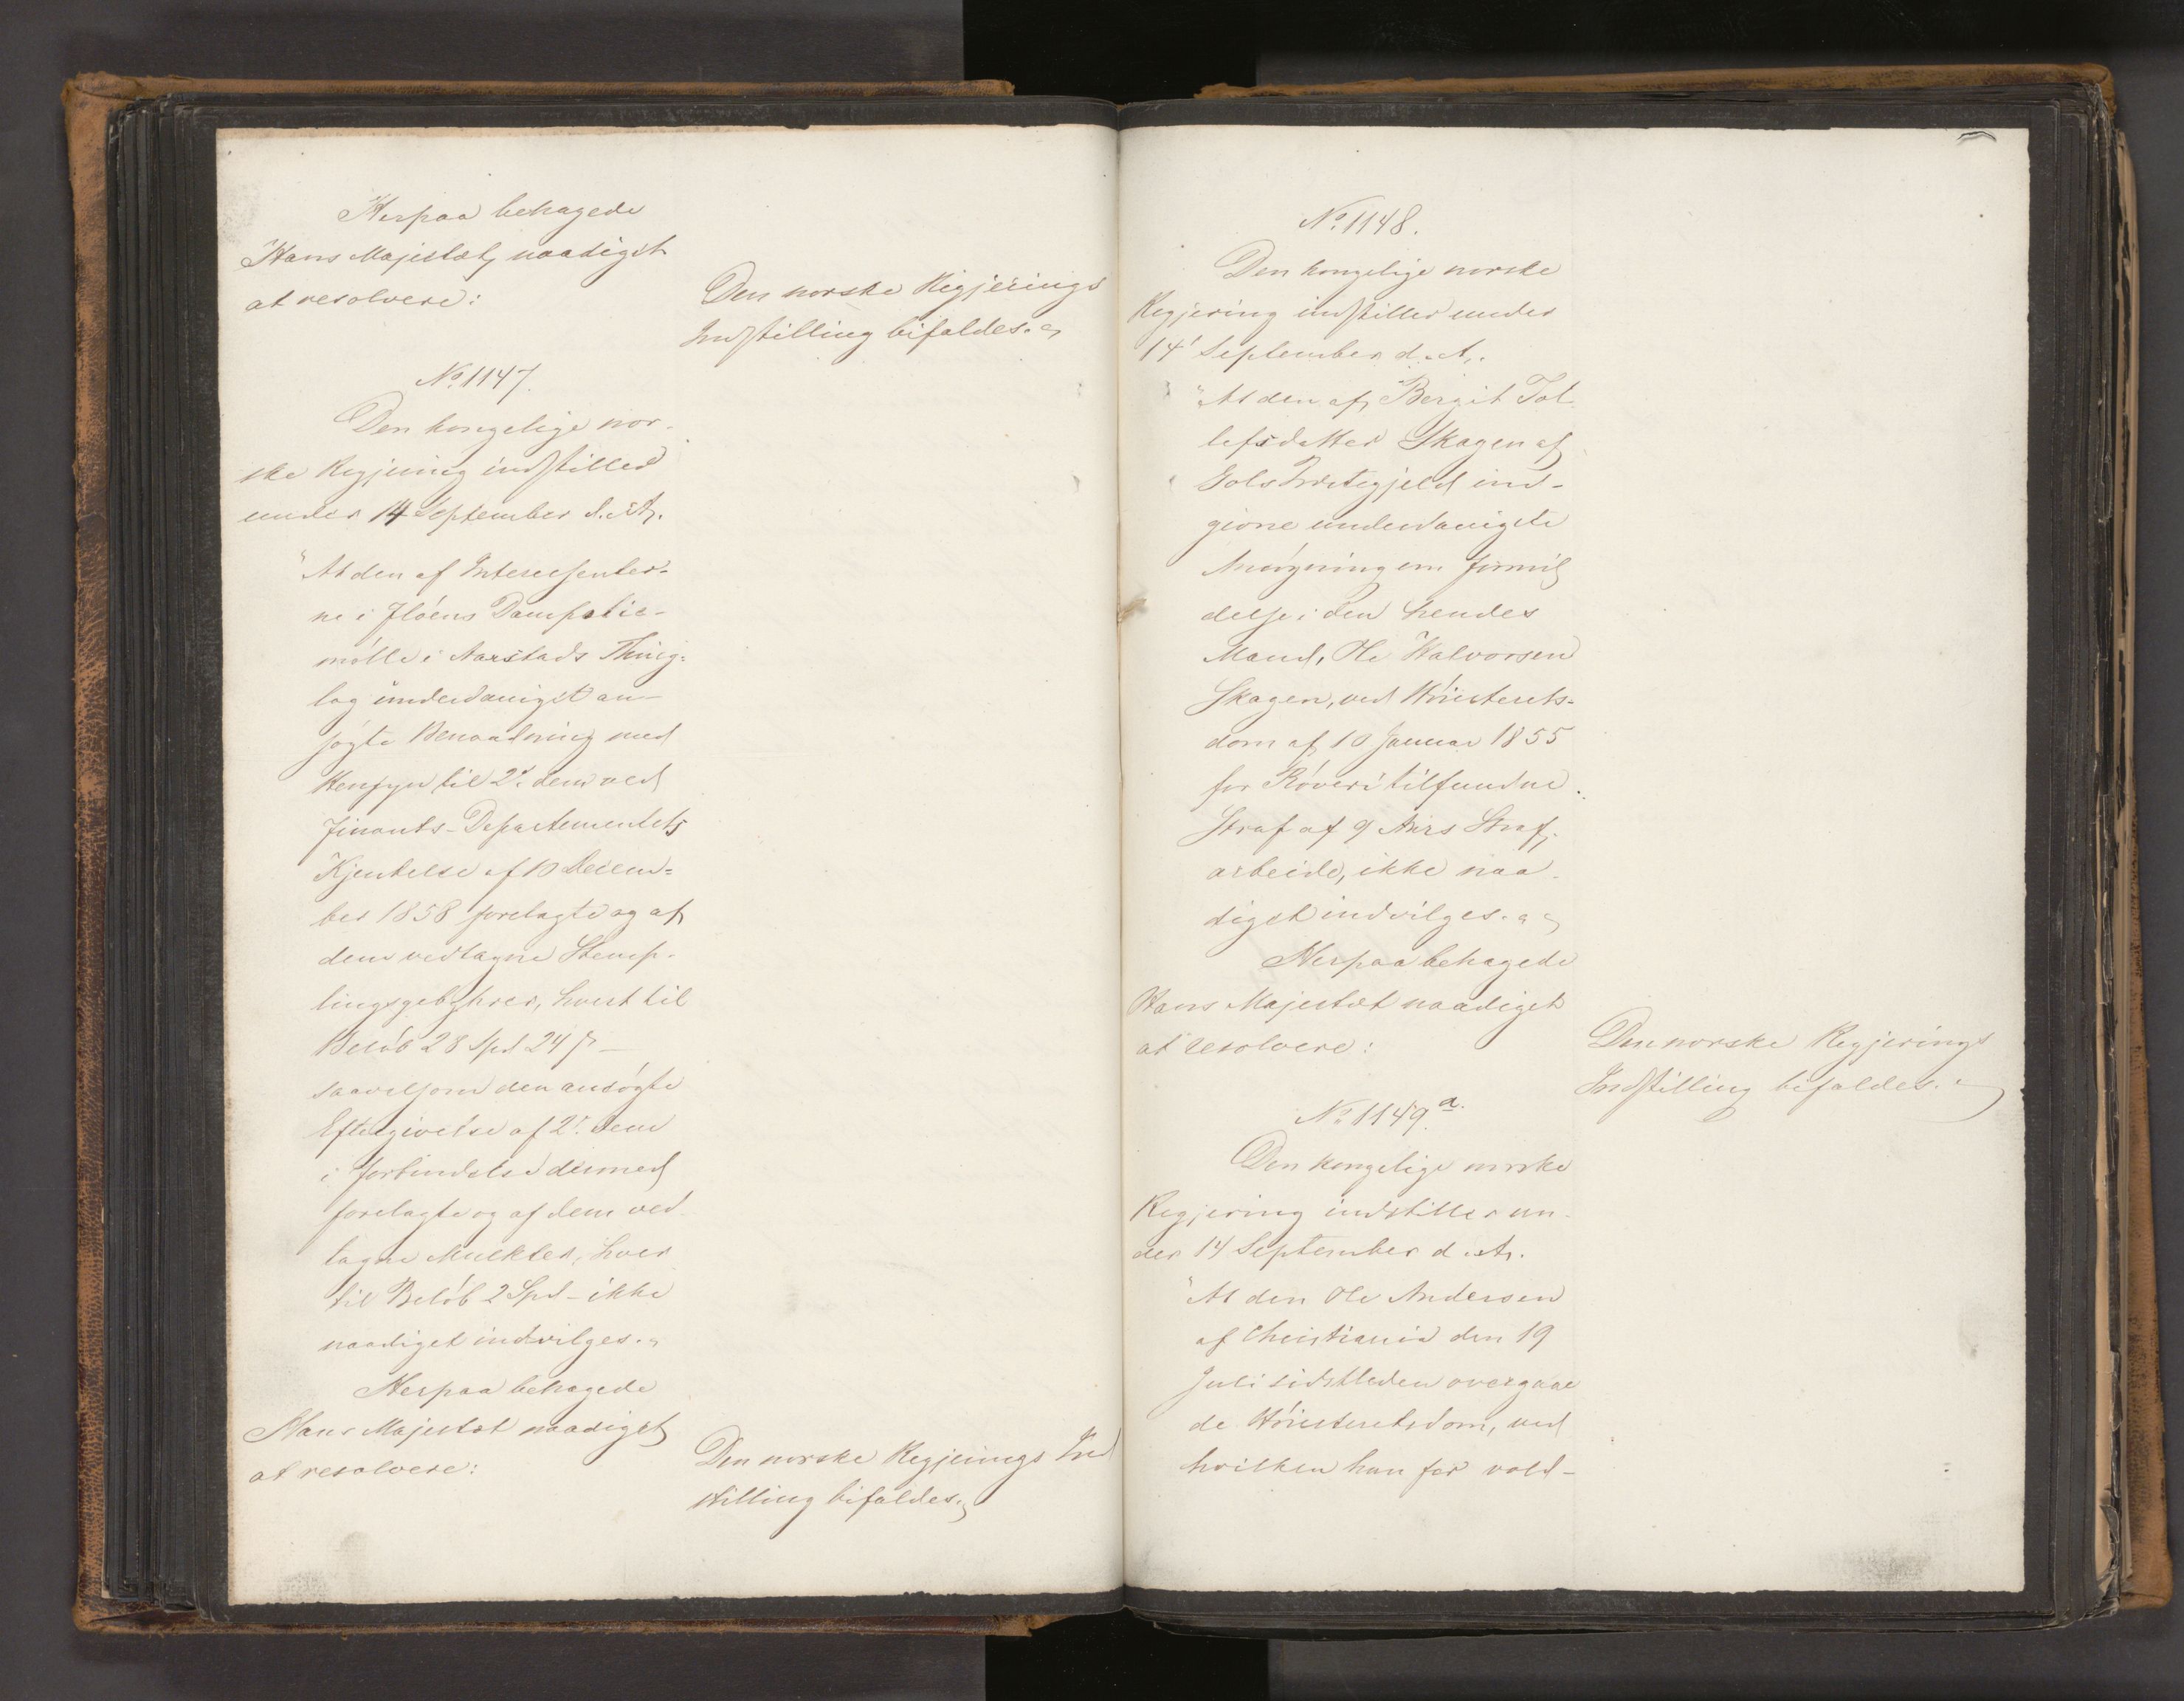 Herpaa behagede
Hans Majestæt naadigst
at resolvere:
Den norske Regjerings
Indstilling bifaldes.
No. 1147.
Den kongelige nor-
ske Regjering indstiller
under 14 September d. A.
"At den af Interessenter-
ne i Flöens Dampolie-
mölle i Aarstads Thing-
lag underdanigst an-
søgte Benaadning med
Hensyn til 2de dem ved
Finants-Departementets
Kjendelse af 10 Decem-
ber 1858 forelagte og af
dem vedtagne Stemp-
lingsgebyhrer, hvert til
Belöb 28 Spd 24 ß —
saavelsom den ansögte
Eftergivelse af 2de dem
i Forbindelse dermed
forelagte og af dem ved-
tagne Mulkter, hver
til Belöb 2 Spd - ikke
naadigst indvilges.
Herpaa behagede
Hans Majestæt naadigst
at resolvere:
Den norske Regjerings Ind
stilling bifaldes.
No. 1148.
Den kongelige norske
Regjering indstiller under
14 September d. A.
"At den af Bergit Tol-
lefsdatter Skagen af
Gols Præstegjeld ind-
givne underdanigste
Ansögning om Formil-
delse i den hendes
Mand, Ole Halvorsen
Skagen, ved Höiesterets-
dom af 10 Januar 1855
for Röveri tilfundne
Straf af 9 Aars Straf-
arbeide, ikke naa-
digst indvilges.
Herpaa behagede
Hans Majestæt naadigst
at resolvere:
Den norske Regjerings
Indstilling bifaldes.
No. 1149 a.
Den kongelige norske
Regjering indstiller un-
der 14 September d. A.
"At den Ole Andersen
af Christiania den 19
Juli sidstleden overgaae
de Höiesteretsdom, ved
hvilken han for vold-